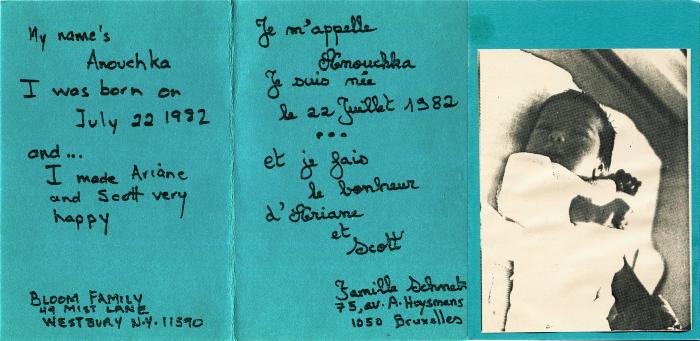 My name's
Anouchka
I was born on
July 22 1982
and...
I made Ariane
and Scott very
happy
BLOOM FAMILY
49 MIST LANE
WESTBURY N.Y. 11590
Je m'appelle
Anouchka
Je suis née
le 22 Juillet 1982
...
et je fais
le bonheur
d'Ariane
et
Scott
Famille
75, av. A. Huysmans
1050 Bruxelles